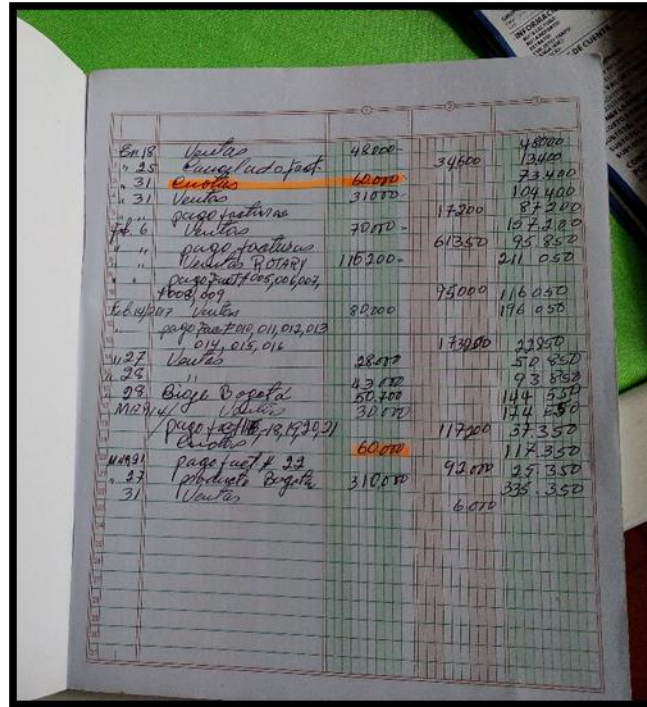 INFORMAC
DE CUENTA
① ② ③
En 18 Ventas 48000- 48000
" 25 Cancelado fact. 34600 13400
" 31 Cuotas 60.000- 73.400
" 31 Ventas 31000- 104.400
" " pago facturas 17200 87200
Feb. 6 Ventas 70000- 157.200
" " pago facturas 61350 95.850
" " Ventas ROTARY 115200- 211 050
" " pago Fact# 005,006,007,
008,009 95000 116 050
Feb. 14/2017 Ventas 80,000 196 050
" pago Fact# 010, 011, 012, 013
014, 015, 016 173200 22850
" 27 Ventas 28000 50 850
" 28 " 43 000 93 850
" 28 Bogotá 50,700 144 550
Mar 14/ Ventas 30000 174 550
pago fact 18,19,20,21 117200 37.350
Cuotas 60,000 117.350
Mar 21 pago fact # 22 92,000 25.350
" 27 producto Bogotá 310,000 335.350
31 Ventas 6.000